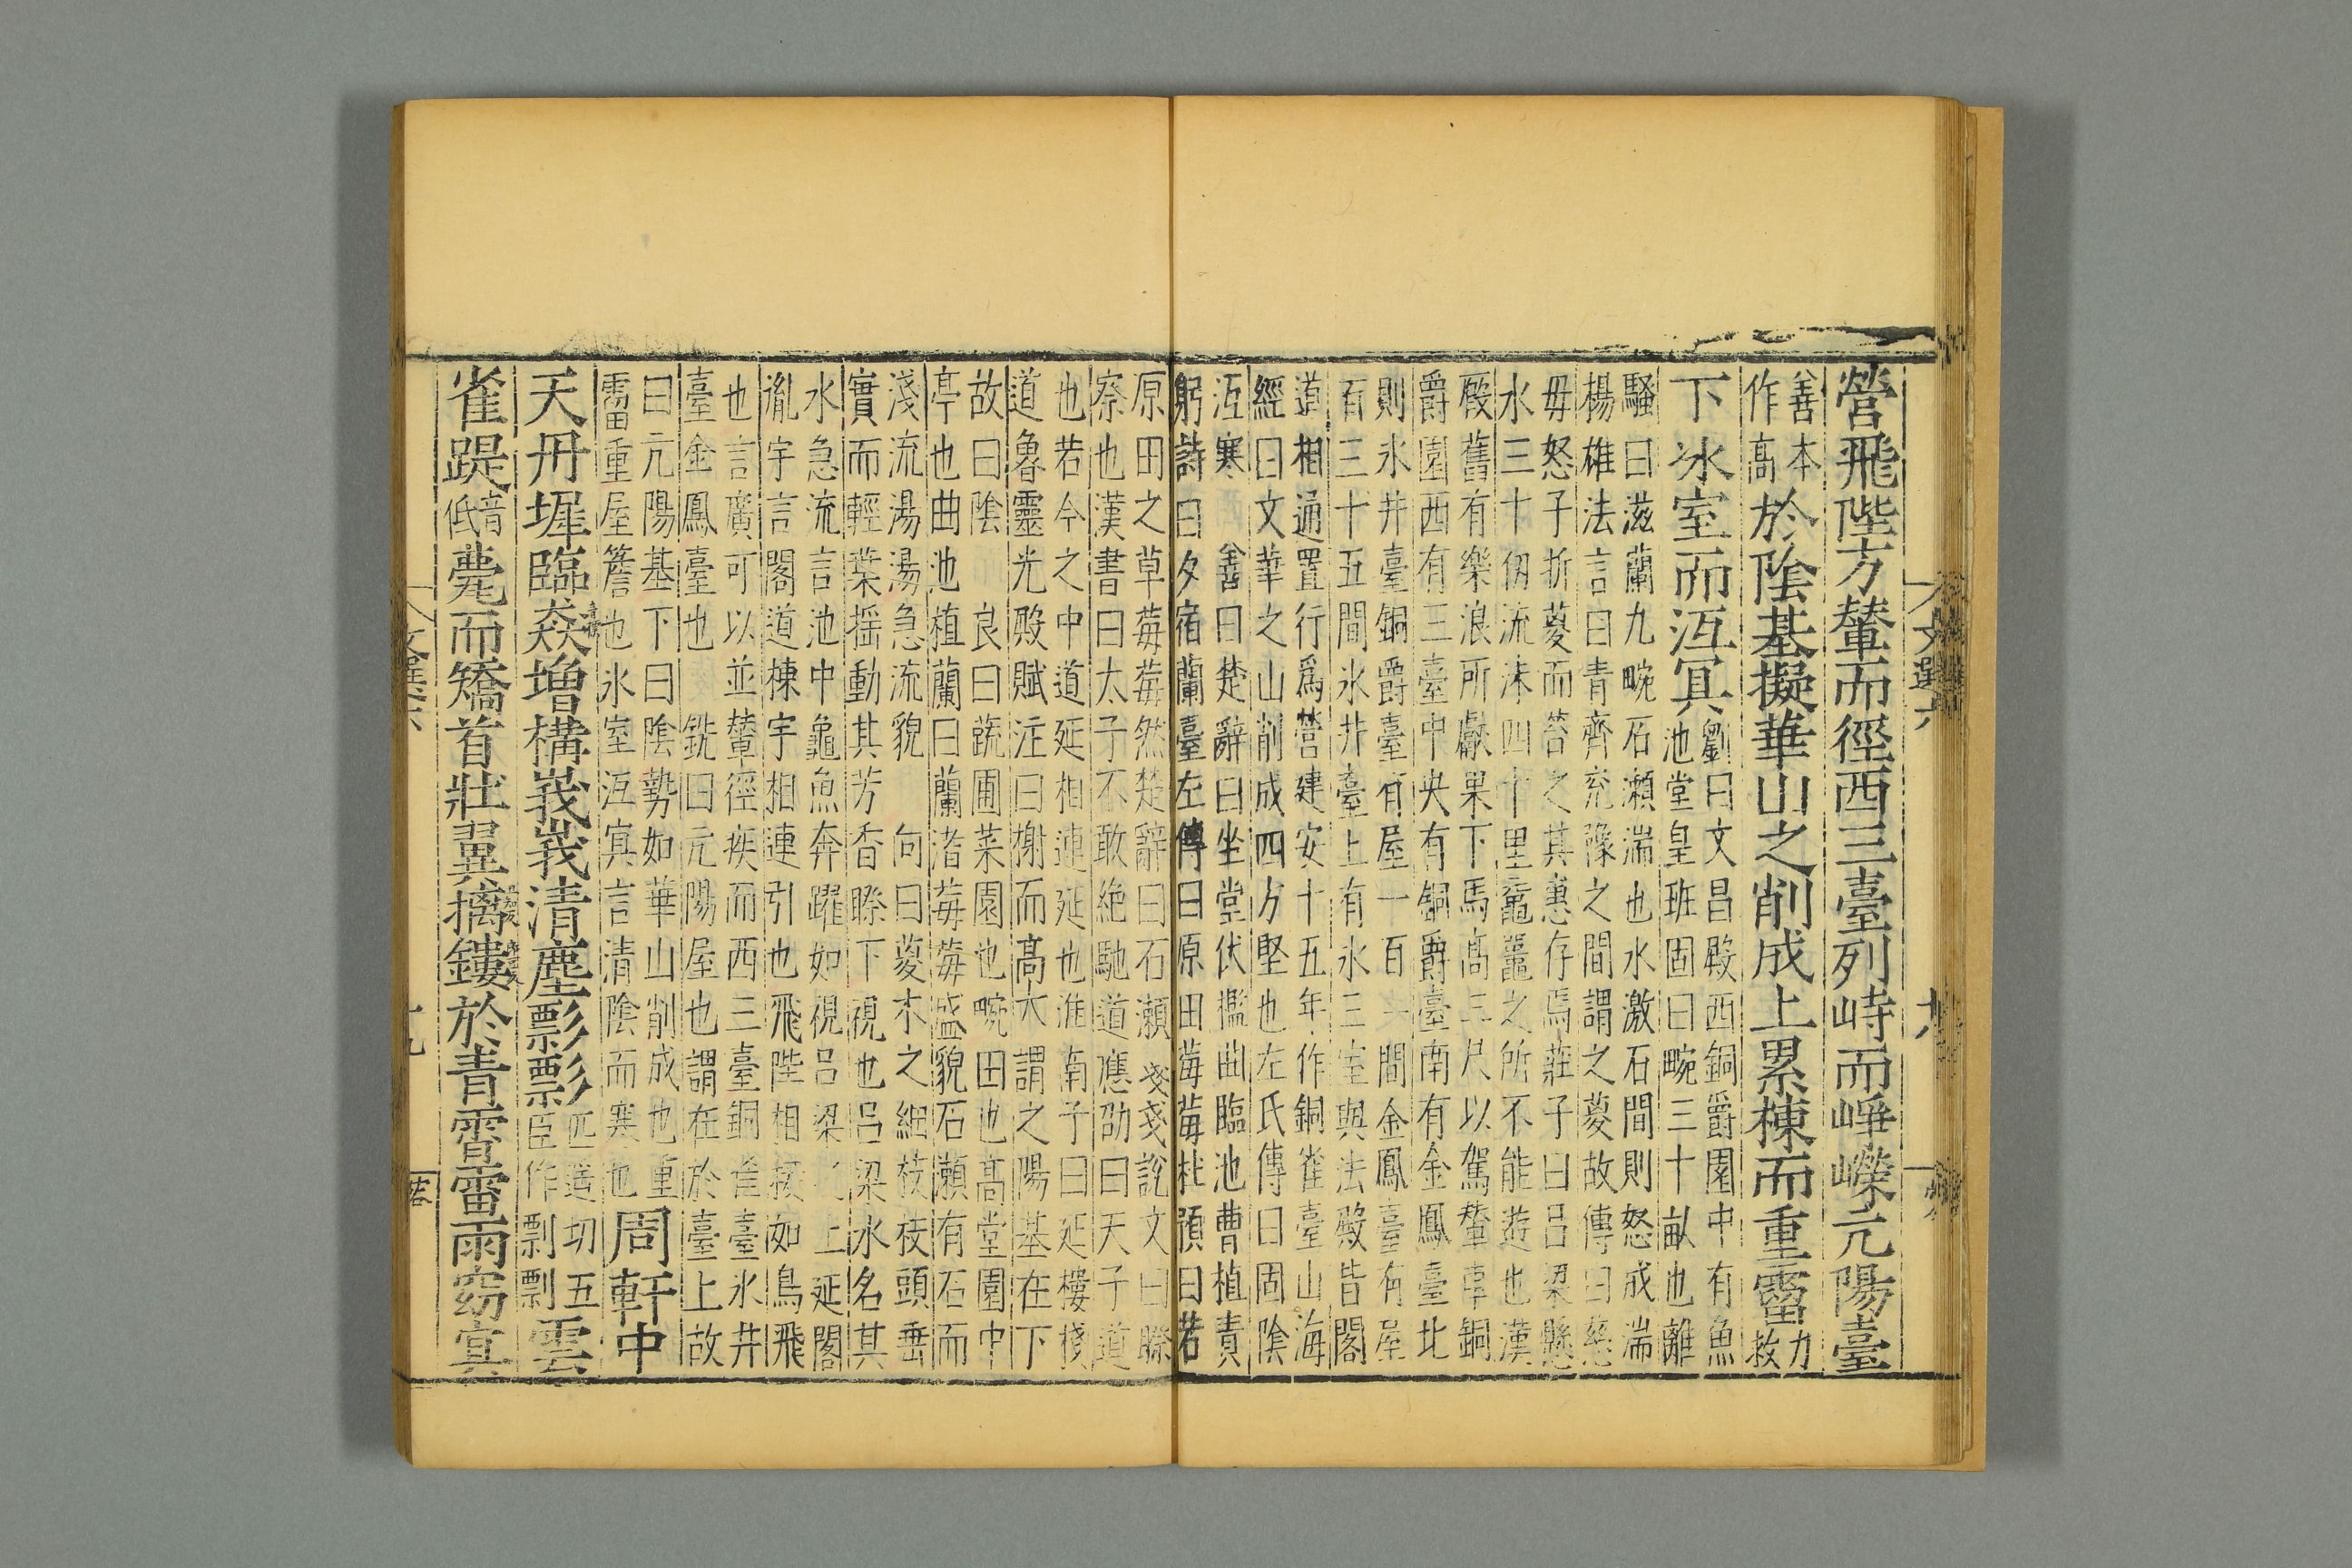 營飛陛方輦而徑西三臺列峙而崢嶸元陽臺
善本
作高
於陰基擬華山之削成上累棟而重霤
力
救
下冰室而沍冥
劉曰文昌殿西銅爵園中有魚
池堂皇班固曰畹三十畝也離
騷曰滋蘭九畹石瀬湍也水激石間則怒成湍
楊雄法言曰青齊兖豫之間謂之葼故傳曰慈
毋怒子折葼而笞之其惠存焉莊子曰吕梁懸
水三十仞流沫四十里黿鼉之所不能遊也漢
廏舊有樂浪所獻果下馬高三尺以駕輦車銅
爵園西有三臺中央有銅爵臺南有金鳳臺北
則氷井臺銅爵臺有屋一百一間金鳳臺有屋
百三十五間氷井臺上有氷三室與法殿皆閣
道相通置行爲營建安十五年作銅雀臺山海
經曰文華之山削成四方堅也左氏傳曰固陰
沍寒 善曰楚辭曰坐堂伏檻曲臨池曹植責
躬詩曰夕宿蘭臺左傳曰原田莓莓杜預曰若
原田之草莓莓然楚辭曰石瀬淺淺説文曰瞭
察也漢書曰太子不敢絶馳道應劭曰天子道
也若今之中道延相連延也淮南子曰延樓棧
道魯靈光殿賦注曰榭而高大謂之陽基在下
故曰陰 良曰蔬圃菜園也畹田也高堂園中
亭也曲池植蘭曰蘭渚莓莓盛貌石瀬有石而
淺流湯湯急流貌 向曰葼木之細枝枝頭垂
實而輕葉揺動其芳香瞭下視也吕梁水名其
水急流言池中龜魚奔躍如視吕梁 上延閣
胤宇言閣道棟宇相連引也飛陛相接如鳥飛
也言廣可以並輦徑疾而西三臺銅雀臺氷井
臺金鳳臺也 銑曰元陽屋也謂在於臺上故
曰元陽基下曰陰勢如華山削成也重
霤重屋簷也氷室沍寘言清陰而寒也
周軒中
天丹墀臨猋增構峩峩清塵彯彯
匹遥切五
臣作剽剽
雲
雀踶
音
低
甍而矯首壯翼摛鏤於青霄雷雨窈寘
文選六
文選六